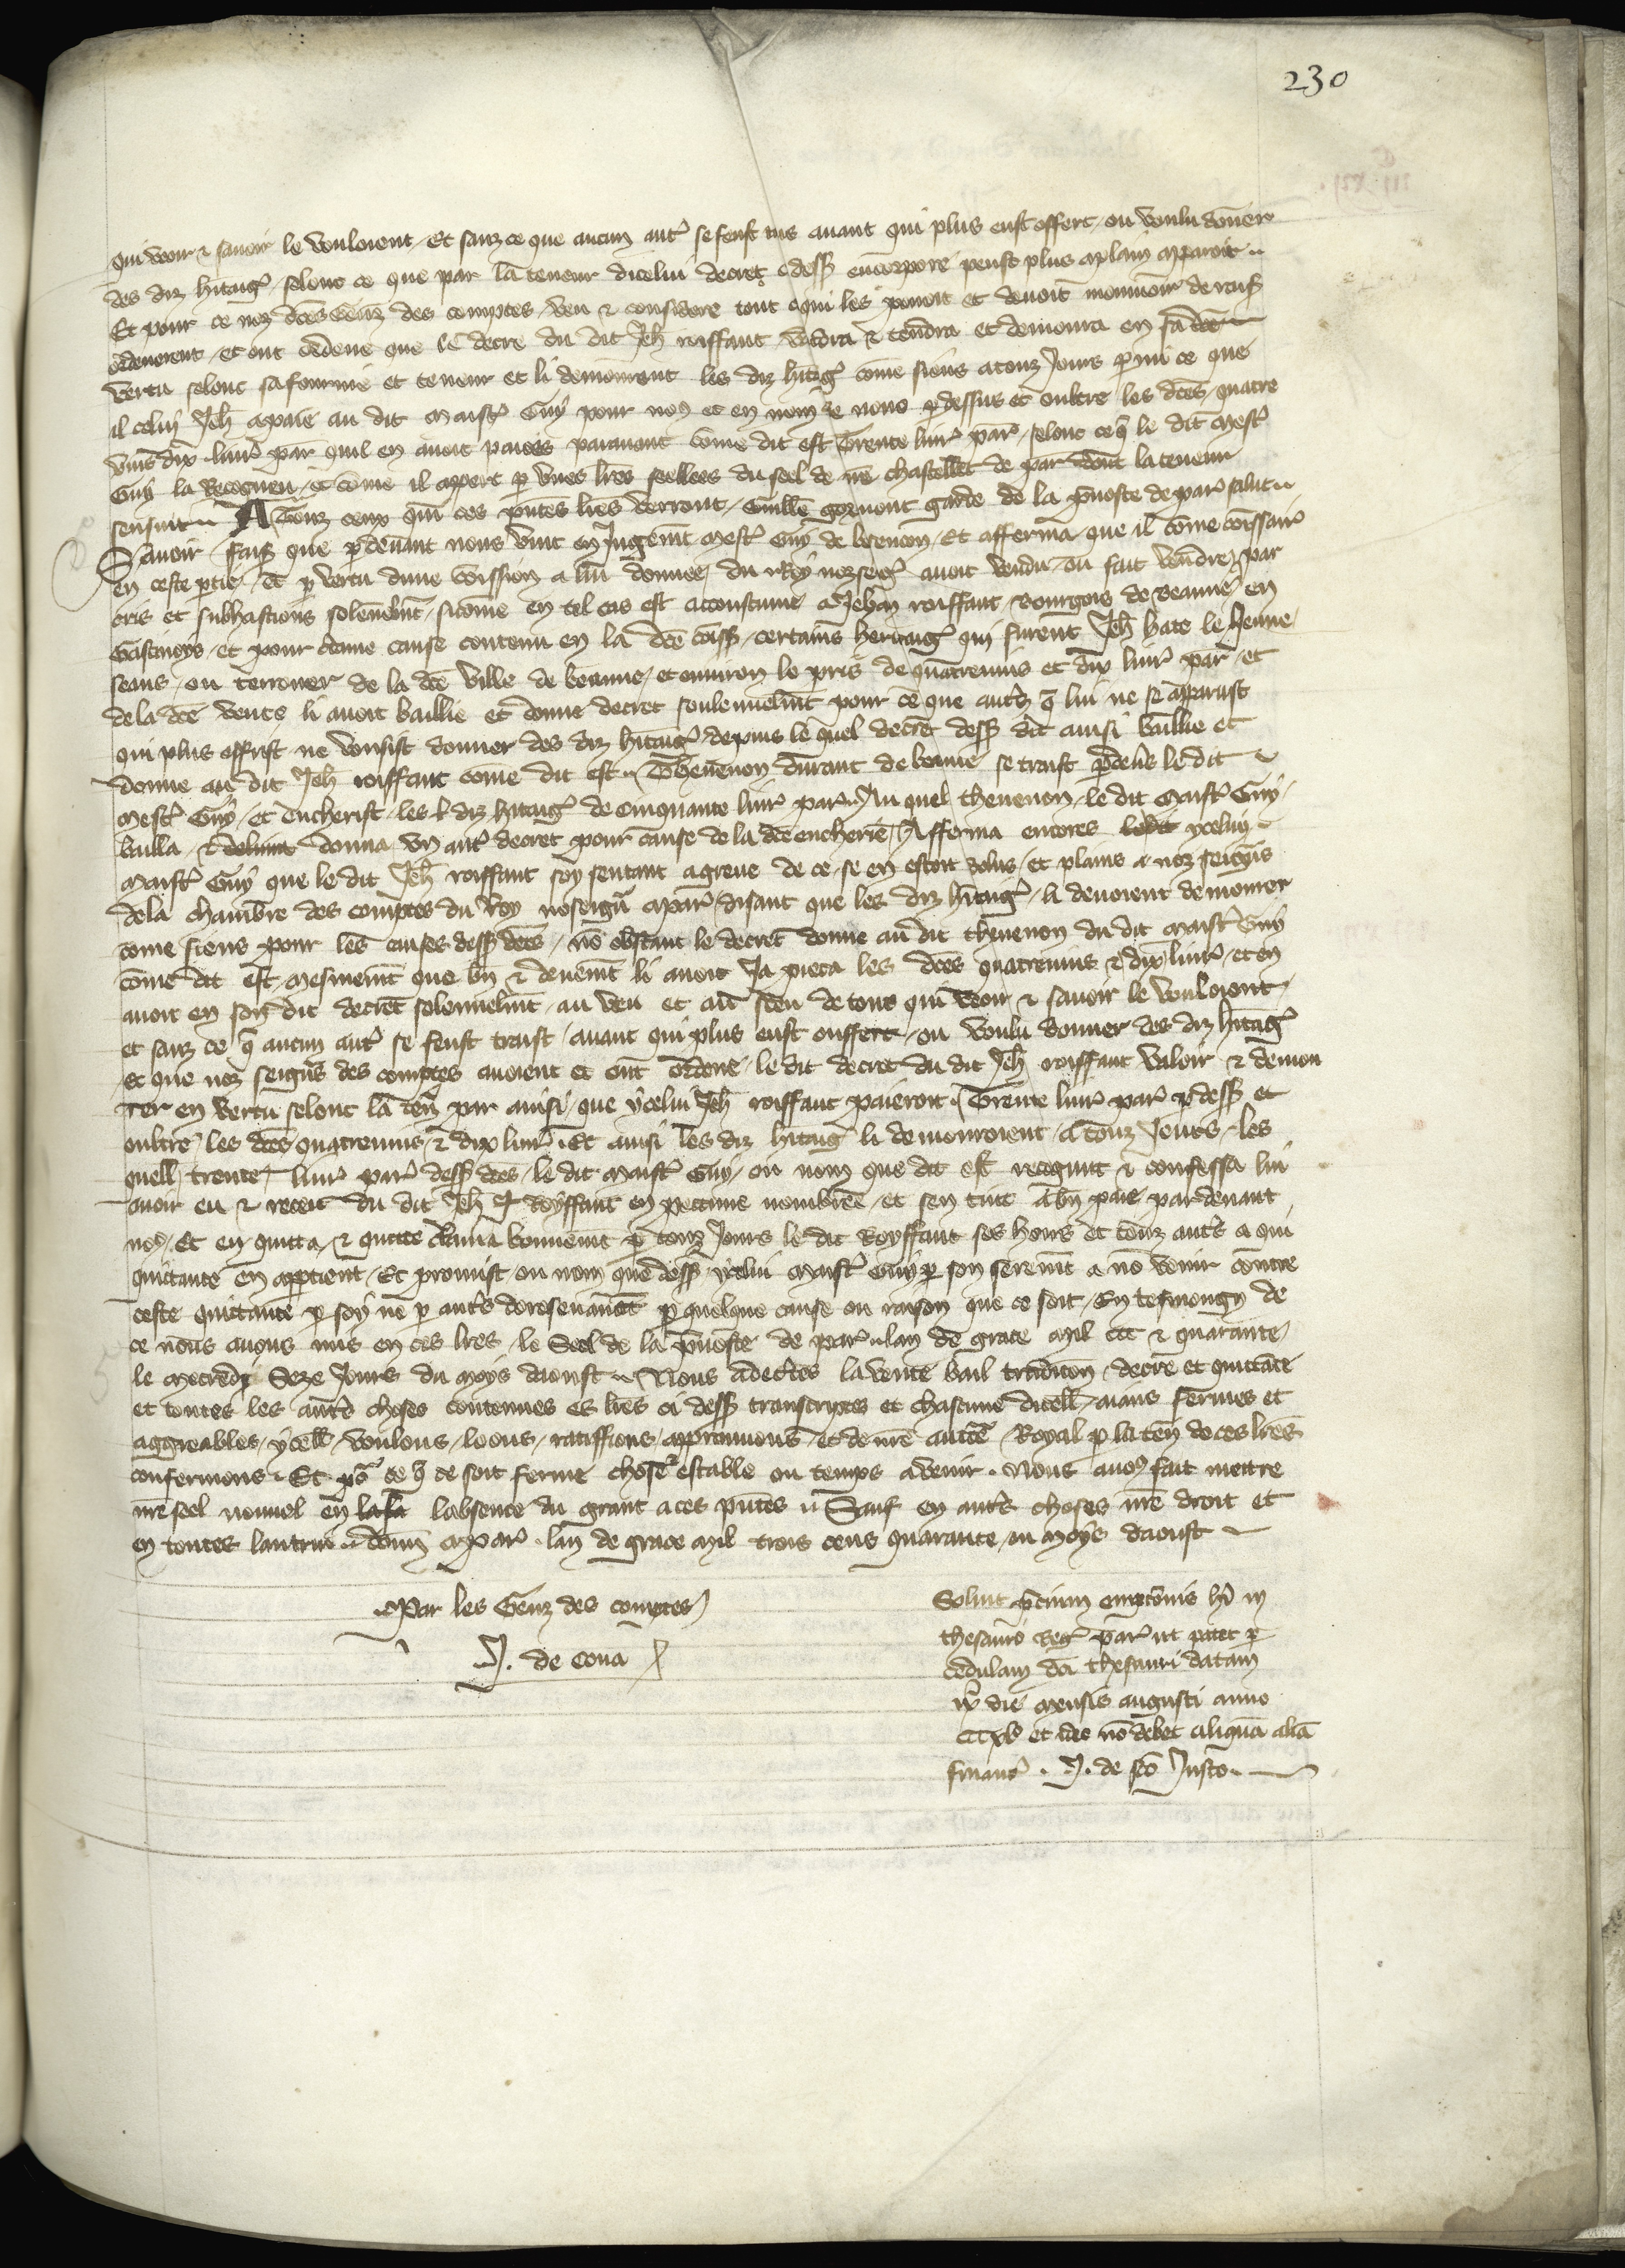 230
qui veoir & savoir le vouloient, Et sanz ce que aucun autr̃ se feust mis avant qui plus eust offert, ou voulu doner
des diz hitaig̃, selonc ce que par la teneur dicelui decret cdess̃ encorporé peust plus aplain apparoir
Et pour ce noz dc̃es Genz des comptes, veu & considere tout c qui les povoit et devoit mouvoir de rais̃
ordenerent, et ont ordene que le decre du dit Jeh̃ roiffant, valdra & tendra et demoura en sa dc̃e
vertu selonc sa fourme et teneur et li demourront les diz hitaig̃ come siens a touz Jours p̃mi ce que
il celui Jeh̃ a paie au dit maistr̃ Guy pour no9 et en nom de nous p̃dessus et oultre les dc̃es quatre
vins dix livr̃ par̃ quil en avoit paiees paravant come dit est Trente livr̃ par̃, selonc ce q̃ le dit mestr̃
Guy la Recogneu, et come il appert p̃ unes lr̃es seellees du seel de nr̃e chastellet de par̃ dont la teneur
sensuit A Touz ceuz qui ces pñtes lr̃es verront, Guill̃e gormont garde de la p̃voste de par̃ salut
Savoir, fais̃ que p̃devant nous vint en Jugem̃t mestr̃ Guy de Et afferma que il come com̃issair̃
en ceste p̃tie, et p̃ vertu dune com̃ission a lui donnee du Roy nozseig̃ avoit vendu, ou fait vendre, par
cris et subhastions solen̄elm̃t, sicome en tel cas est acoustume a Jehan roiffant, bourgois de beaune en
Gastinoys, et pour c̃taine cause contenu en la dc̃e com̃iss̃, certains heritaig̃ qui furent Jeh̃ hate le Jeune
seans, ou terrouer de la dc̃e ville de beaune, et environ le pris de quatrevins et dix livr̃ par̃, et
de la dc̃e vente li avoit baillie et donne decret soulennelm̃t pour ce que autr̃ q̃ lui ne se apparust
qui plus offrist ne vousist donner des diz hitaig̃, depuis le quel decret dess̃ dit ainsi baillie et
donne au dit Jeh̃ roiffant come dit est. Thevenon durant de beaune se traist p̃devs le dit
mestr̃ Guy, et encherist les diz hitaig̃ de cinquante livr̃ par̃. Au quel thevenon, le dit maistr̃ Guy
bailla, & donna un autr̃ decret pour cause de la dc̃e encherie, Afferma encores ycelui
maistr̃ Guy que le dit Jeh̃ roiffant soy sentant agreve de ce se en estoit volus, et plains a noz seign̄s
de la chambre des comptes du Roy noseign̄ a par̃, disant que les diz hitaig̃, li devoient demourer
come siens pour les causes dess̃ dc̃es, no obstant le decret donne au dit thevenon du dit maistr̃ Guy
come dit est, mesmem̃t que bn̄ & deuem̃t li avoit Ja pieca les dc̃es quatrevins & dix livr̃, et en
avoit en son dit decret solennelm̃t, au veu et au sceu de touz qui veoir & savoir le vouloient,
et sanz ce q̃ aucun autr̃ se feust traist, avant qui plus eust ouffert, ou voulu donner des diz hitaig̃
et que noz seign̄s des comptes avoient et ont ordene, le dit decret du dit Jeh̃ roiffant valoir & demou
rer en vertu selonc la ten̄ par ainsi, que ycelui Jeh̃ roiffant paieroit. Trente livr̃ par̃ p̃dess̃ et
oultre les dc̃es quatrevins & dix livr̃. Et ainsi les diz hitaig̃ li demourroient, a touz Jours, les
quell̃ trente livr̃ par̃ dess̃ dc̃es, le dit maistr̃ Guy, ou nom que dit est recognut & confessa lui
avoir eu & receu du dit Jeh̃ Royffant en peccune nombree, et sen tint a bn̄ paie pardevant
no9, Et en quitta, & quitte clama bonnem̃t p̃ touz Jours le dit Royffant ses hoirs et touz autr̃s a qui
quittance en app̃tient, Et promist, ou nom que dess̃ ycelui maistr̃ Guy p̃ son serem̃t a no venir contre
ceste quittance p̃ soy ne p̃ autr̃s doresenavant p̃ quelque cause ou raison que ce soit, En tesmoing de
ce nous avons mis en ces lr̃es, le Seel de la p̃voste de par̃ lan de grace mil ccc & quarante
le mecredi Seze Jours du moys daoust. Nous adectes la vente bail tradicion, decre et quittace
et toutes les autr̃s choses contenues es lr̃es ci dess̃ transcriptes et chascune dicell̃, aians fermes et
aggreables, ycell̃, voulons, loons, ratiffions, approuvons, et de nr̃e auct̃e Royal p̃ la ten̄ de ces lr̃es
confermons. Et po᷑ ce q̃ ce soit ferme chose & estable ou temps avenir. Nous avo9 fait mettre
nr̃e seel nouvel en labsence du grant a ces pñtes. Sauf en autr̃s choses nr̃e droit et
en toutes lautrui. Donn̄ a par̃, lan de grace mil trois cens quarante, ou moys daoust
Par les Genz des comptes
J. de cona
Solvit p̃cium empcionis hi in
thesauro Reg̃ par̃ ut patet p̃
cedulam dc̃i thesauri datam
ix die mensis augusti anno
CCCxl et ideo no debet aliqua alia
financ̃. J. de sco Justo.